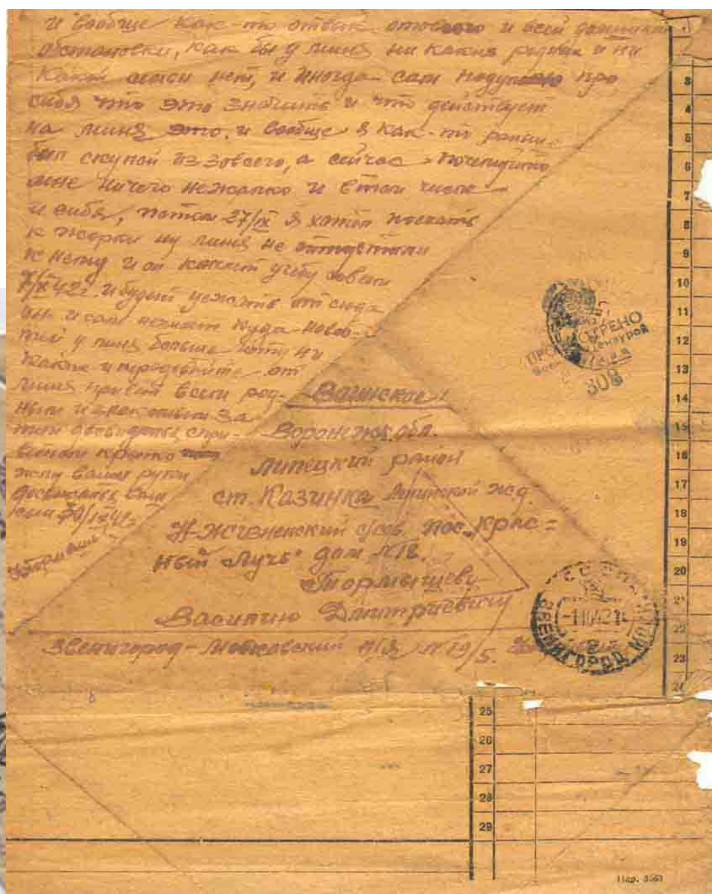 и вообще как-то отвык от всего и всей домашней
обстановки, как бы у миня ни каких родных и ни
какой семьи нет, и иногда сам подумаю про
себя что это значить и что действует
на миня это. и вообще я как-то ранше
был скупой из зовсего, а сейчас почемуто
мне ничего нежалко и втом числе
и сибя, потом 27/IX я хотел поехать
к Жорки ну миня не отпустили
к нему и он кончит учебу совсем
7/X 42г. и будит уежать от сюда
он и сам незнает куда Ново-
тей у миня больше нету ни
каких и передовайте от
миня привет всем род-
ным и знакомым За
тем досвиданья с при-
ветом крепко
жму ваши руки
досвиданья ваш
сын 30/IX 42г.
Воинское
Воронежск. обл.
Липецкий район
ст. Казинка Ленинской жд.
с/сов. пос. „Крас=
ный Лучь" дом №18.
Тормышеву
Василию Дмитриевичу
Звенигород-Московский п/я №19/5.
ПРОСМОТРЕНО
Военной Цензурой
308
СССР
-1 10 42
ЗВЕНИГОРОД МОСК
3
4
5
6
7
8
9
10
11
12
13
14
15
16
17
18
19
20
21
22
23
24
25
26
27
28
29